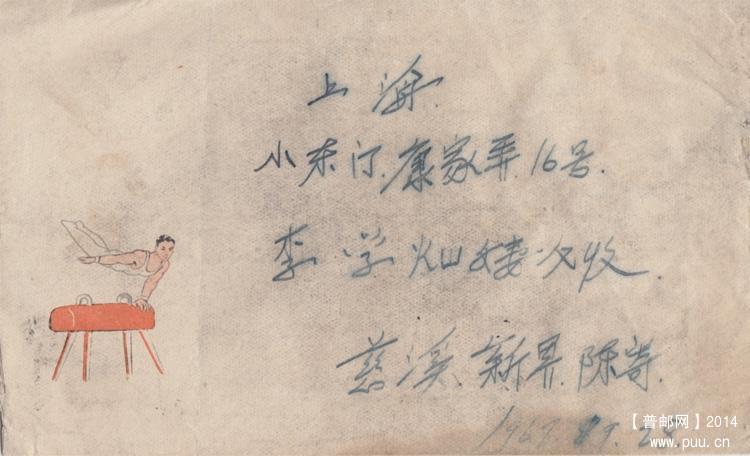 上海.
小东门.康家弄.16号.
李学灿 收.
慈溪.新界.陈寄.
1967.
【普邮网】2014
www.puu.cn